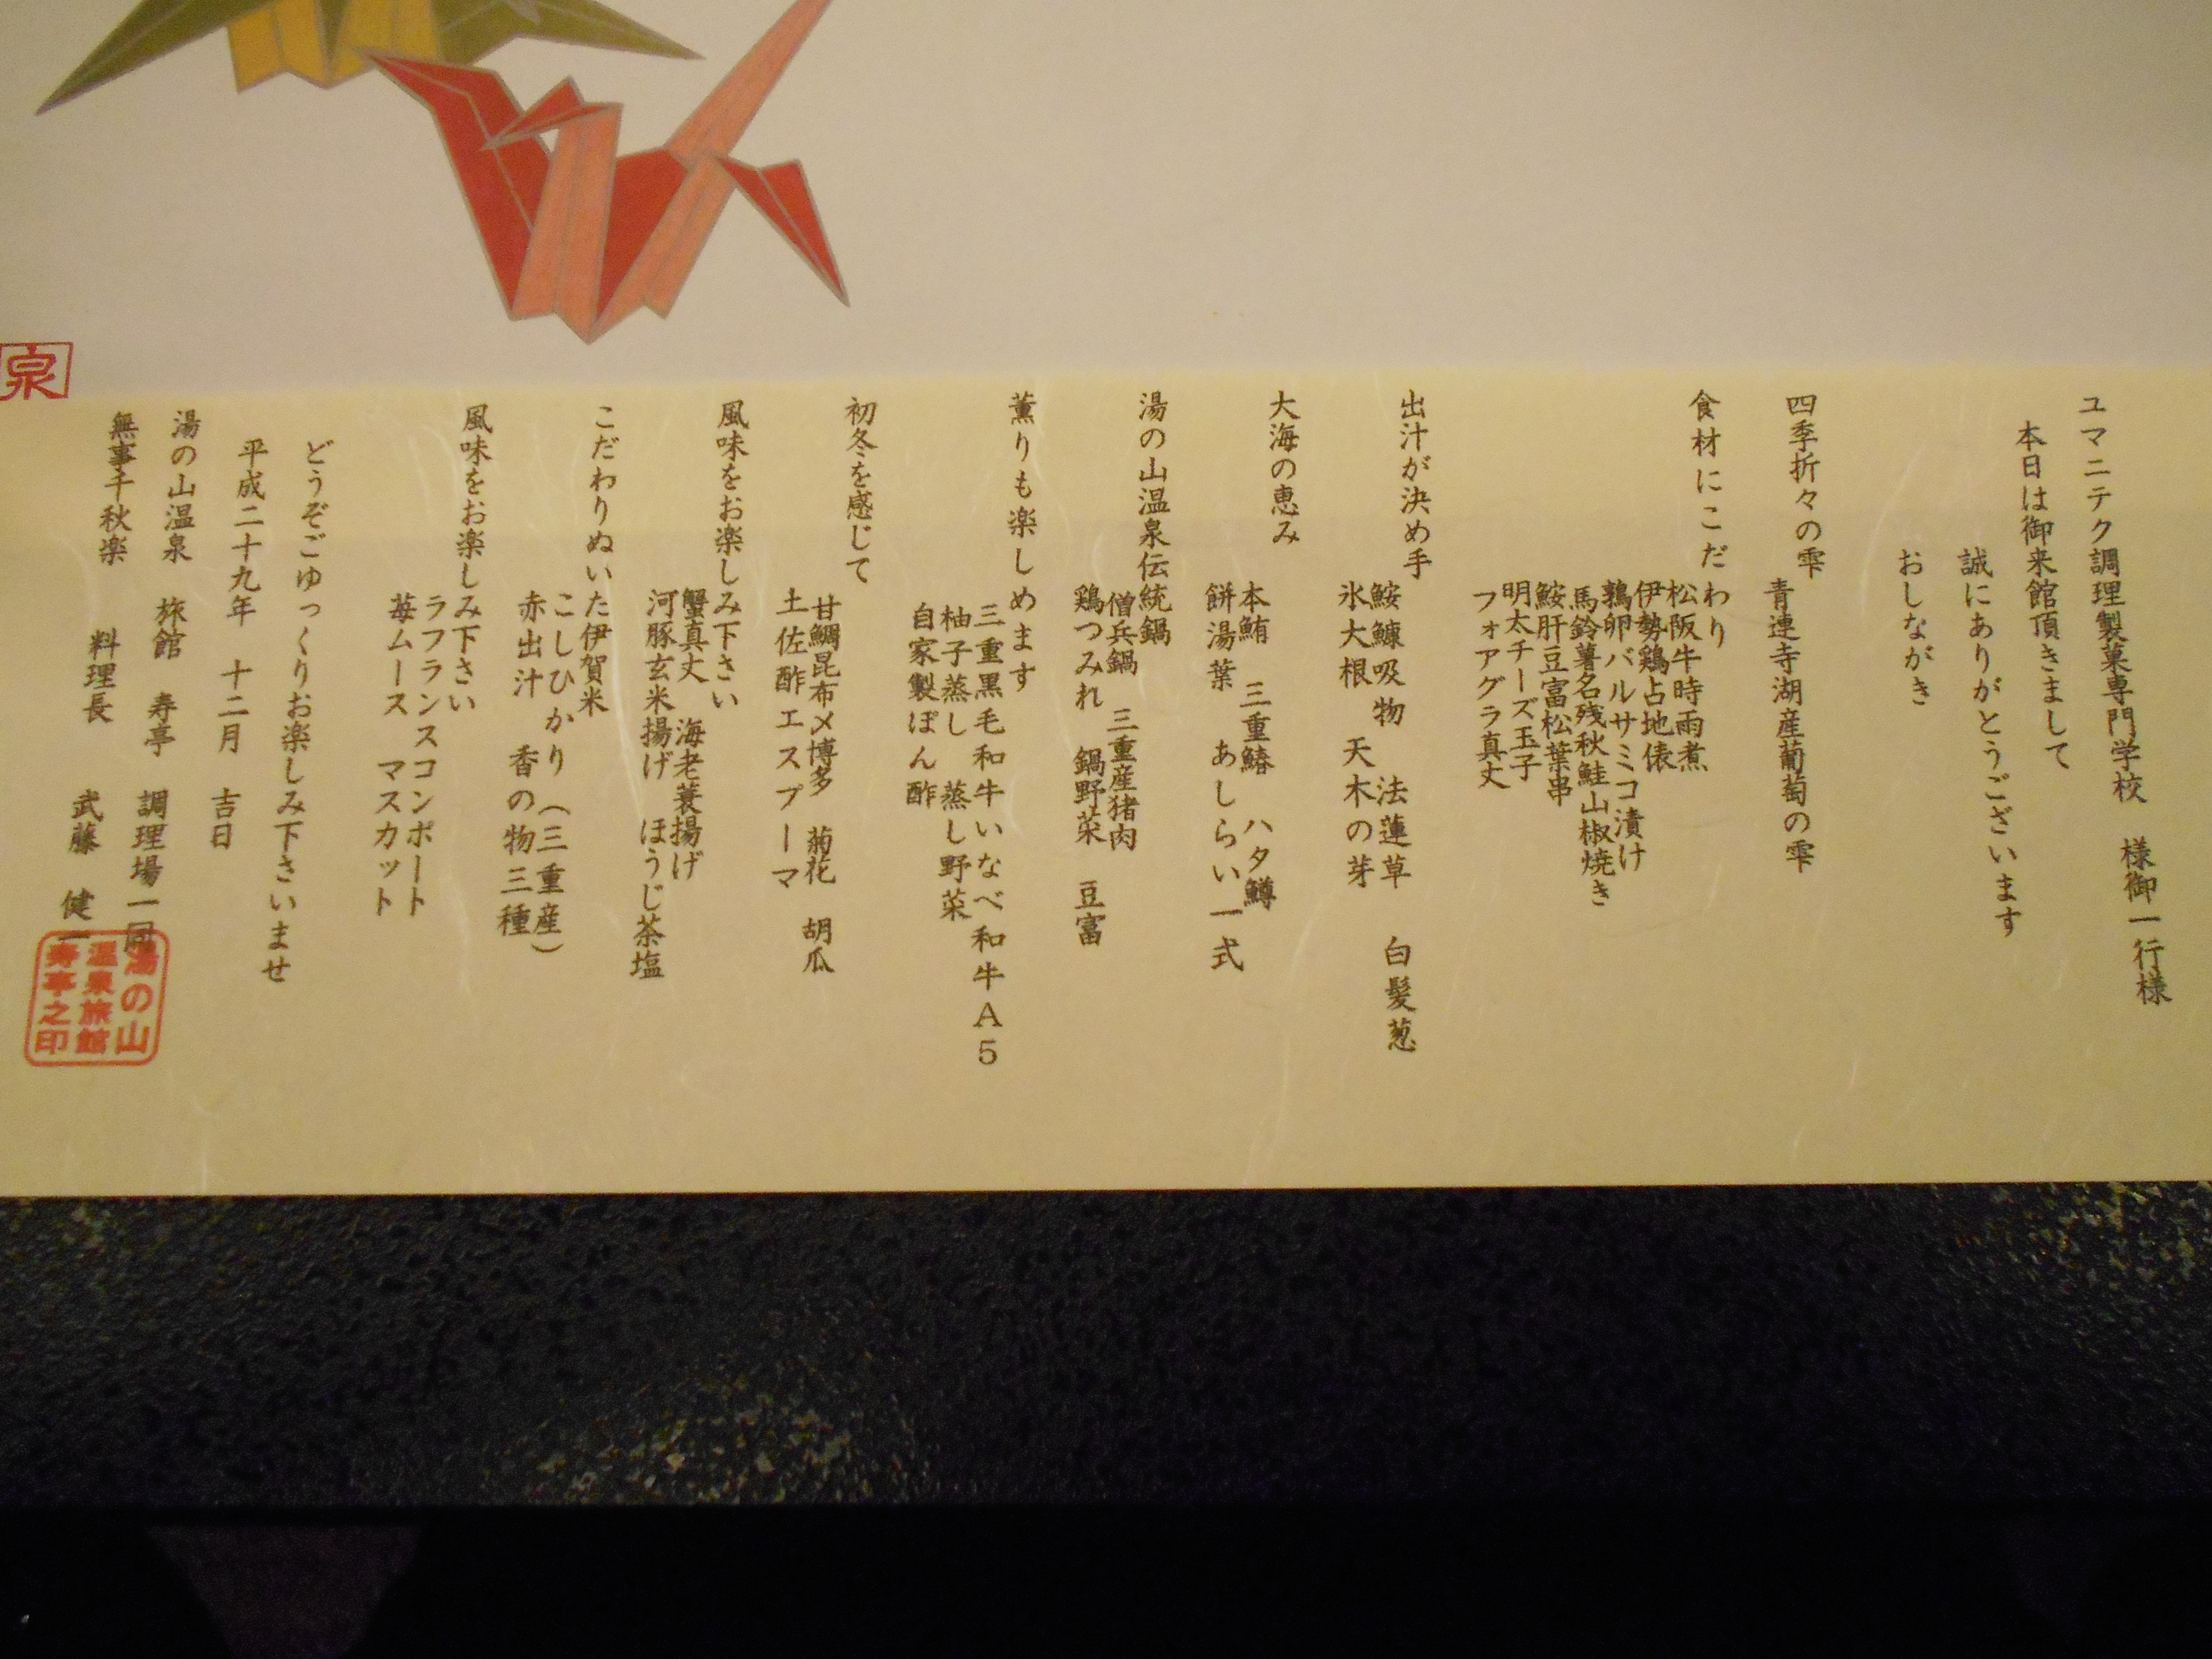 ユマニテク調理製菓専門学校　様御一行様
本日は御来館頂きまして
誠にありがとうございます
おしながき
四季折々の雫
青連寺湖産葡萄の雫
食材にこだわり
松阪牛時雨煮
伊勢鶏占地俵
鶉卵バルサミコ漬け
馬鈴薯名残秋鮭山椒焼き
鮟肝豆富松葉串
明太チーズ玉子
フォアグラ真丈
出汁が決め手
鮟鱇吸物　法蓮草　白髪葱
氷大根　天木の芽
大海の恵み
本鮪　三重鰆　ハタ鱒
餅湯葉　あしらい一式
湯の山温泉伝統鍋
僧兵鍋　三重産猪肉
鶏つみれ　鍋野菜　豆富
薫りも楽しめます
三重黒毛和牛いなべ和牛A5
柚子蒸し　蒸し野菜
自家製ぽん酢
初冬を感じて
甘鯛昆布〆博多　菊花　胡瓜
土佐酢エスプーマ
風味をお楽しみ下さい
蟹真丈　海老蓑揚げ
河豚玄米揚げ　ほうじ茶塩
こだわりぬいた伊賀米
こしひかり（三重産）
赤出汁　香の物三種
風味をお楽しみ下さい
ラフランスコンポート
苺ムース　マスカット
どうぞごゆっくりお楽しみ下さいませ
平成二十九年　十二月　吉日
湯の山温泉　旅館　寿亭　調理場一同
無事千秋楽　料理長　武藤　健一
湯の山
温泉旅館
寿亭之印
泉